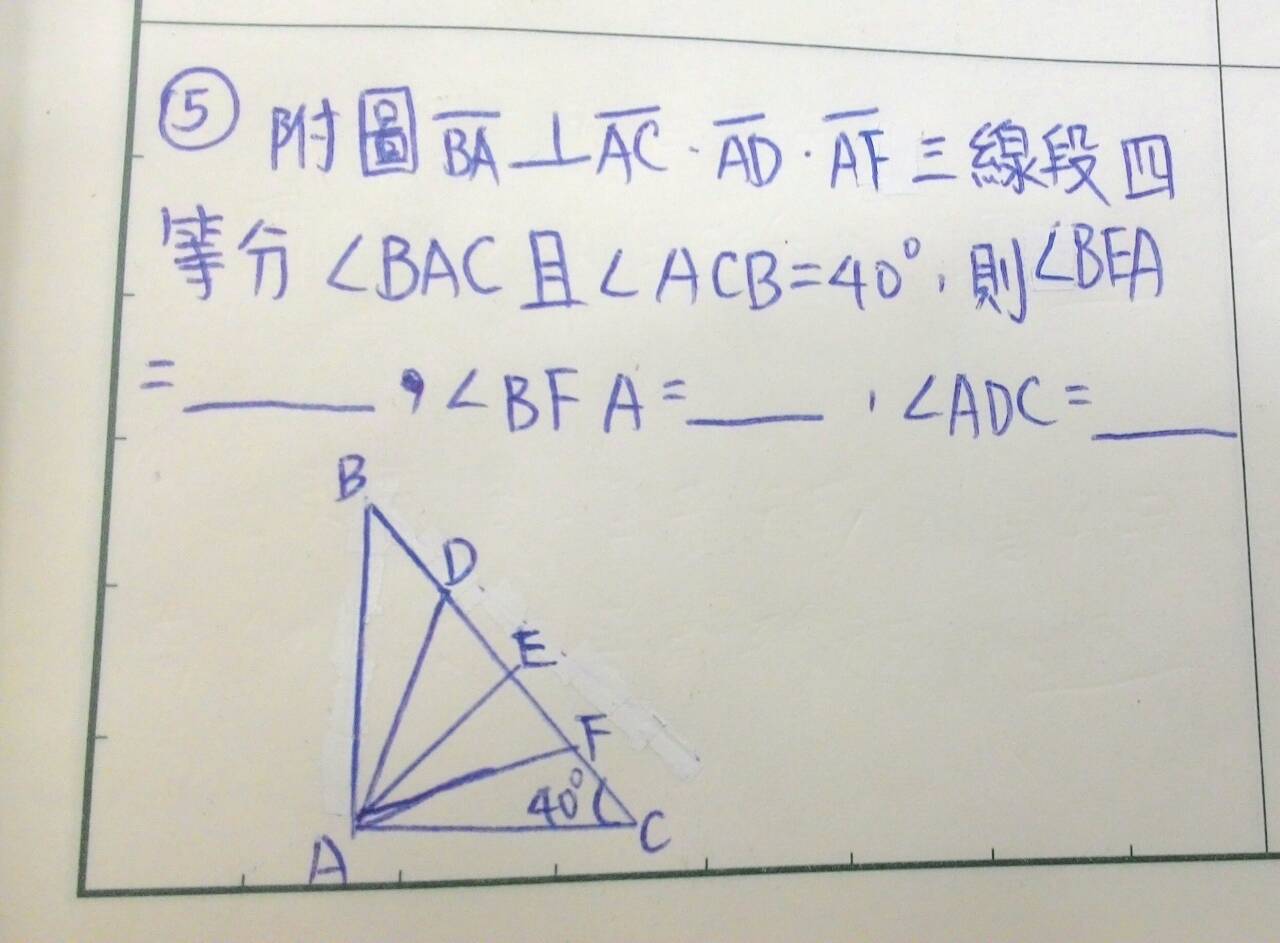 ⑤ 附圖 BA⊥AC.AD.AF 三線段四
等分∠BAC且∠ACB=40°,則∠BEA
=____,∠BFA=____,∠ADC=____
B
D
E
F
40°
C
A